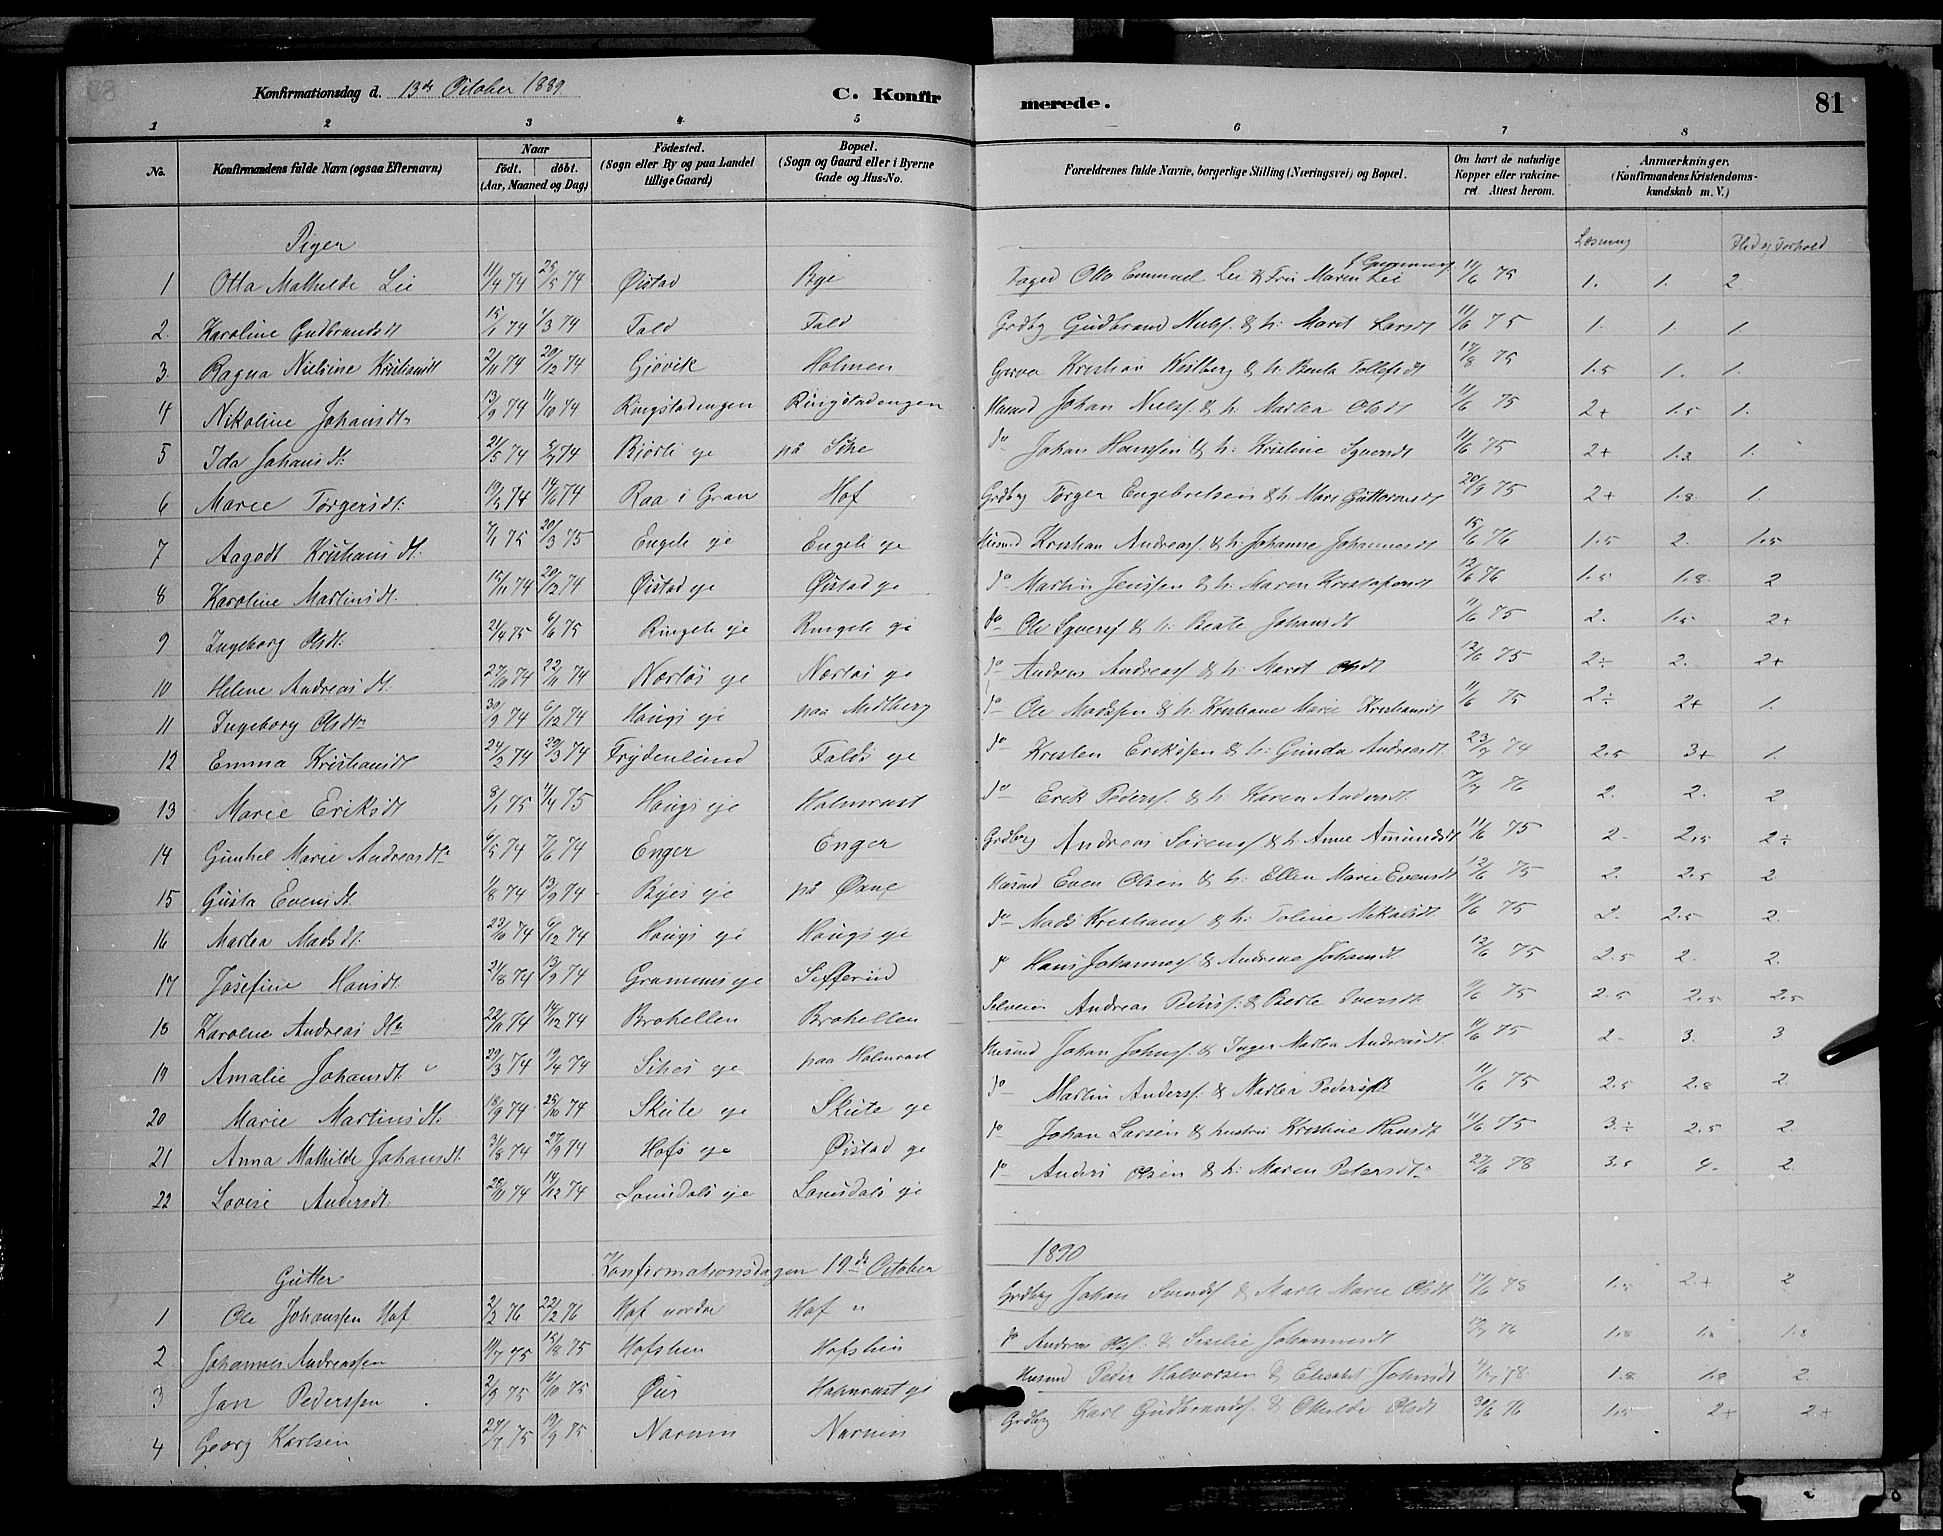 Konfirmationsdag d. 13de October 1889. C. Konfirmerede. 81
1 2 3 4 5 6 7 8
No. Konfirmandens fulde Navn (ogsaa Efternavn) Naar født. døbt. (Aar, Maaned og Dag) Fødested. (Sogn eller By og paa Landet tillige Gaard) Bopæl. (Sogn og Gaard eller i Byerne Gade og Hus-No. Forældrenes fulde Navne, borgerlige Stilling (Næringsvei) og Bopæl. Om havt de naturlige Kopper eller vakcineret. Attest herom. Anmærkninger. (Konfirmandens Kristendomskundskab m. V.)
Piger Læsning Flid og Forhold
1 Otta Mathilde Lie 11/4 74 25/5 74 Øistad Bye Foged Otto Emmanuel Lie & Fru Maren Lie 11/6 75 1. 1. 2
2. Karoline Gudbrandsdt 15/1 74 1/3 74 Fald Fald Grdbrg Gudbrand Nielss. & h. Marit Larsdt 11/6 75 1. 1. 1.
3. Ragna Nielsine Kristiansdt 2/11 74 20/12 74 Gjøvik Holmen Kristian & h. Benta Tollefsdt 17/8 75 1.5 1. 1.
4 Nikoline Johansdt 13/9 74 11/10 74 Ringstadengen Ringstadengen Husmd Johan Nielss. & h. Martea Olsdt 11/6 75 2+ 1.5 1.
5 Ida Johansdt. 21/5 74 5/7 74 Bjørli eje på Sihe do Johan Hanssen & h. Kristine Syversdt 11/6 75 2+ 1.3 1.
6 Marie Torgersdt. 74 74 Raa i Gran Hof Grdbrg Torger Engebretsen & h. Mari Guttormsdt 20/9 75 2+ 1.8 1.
7 Aagodt Kristiansdt. 7/1 75 20/3 75 Engeli eje Engeli eje Husmd Kristian Andreass. & h. Johanne Johannesdt 15/6 76 1.5 2. 1.5
8 Karoline Martinsdt. 15/11 74 20/12 74 Øistad eje Øistad eje do Martin Jenssen & h. Maren Kristofersdt 12/6 76 1.5 1.8. 2
9 Ingeborg Olsdt. 21/4 75 6/6 75 Ringeli eje Ringeli eje do Ole Syverss & h. Beate Johansdt 11/6 75 2. 1.5 2+
10 Helene Andreasdt. 27/10 74 22/11 74 Nørløs eje Nørløs eje do Andreas Andreass & h. Marit Olsdt 12/6 75 2÷ 2. 2+
11 Ingeborg Olsdtr 30/9 74 6/12 74 Haugs eje paa Midberg do Ole Madssen & h. Kristiane Marie Kristiansdt 11/6 75 2÷ 2+ 1.
12 Emma Kristiansdt 24/2 74 29/3 74 Frydenlund Falds eje do Kristen Erikssen & h. Gunda Andreasdt 23/7 74 2.5 3+ 1.
13 Marie Eriksdt 8/1 75 11/4 75 Haugs eje Holmrust do Erik Pederss. & h. Karen Andersdt. 17/7 76 2. 2. 2
14 Gunhel Marie Andreasdtr 6/5 74 7/6 74 Enger Enger Grdbrg Andreas Sørens & h. Anne Amundsdt 11/6 75 2. 2.5 2÷
15 Gusta Evensdt. 1/8 74 13/9 74 Byes eje på Øxne Husmd Even Olsen & h. Ellen Marie Evensdt 12/6 75 2. 2.5 2
16 Martea Madsdt. 23/10 74 6/12 74 Haugs eje Haugs eje do Mads Kristianss & h. Toline Mikalsdt 11/6 75 2. 2.5 2.
17 Josefine Hansdt. 21/8 74 13/9 74 Grammins eje Sifferud do Hans Johanness. & Andrine Johansdt 12/6 75 2.5 2. 2.
18 Karoline Andreasdtr 22/11 74 74 Brohellen Brohellen Selveier Andreas Pederss. & Berte Iversdt. 75 2.5 2.5 2.5
19 Amalie Johansdt. 29/3 74 19/4 74 Sihes eje paa Holmrust Husmd Johan Johns. & Inger Martea Andreasdt. 11/6 75 2. 3. 3
20 Marie Martinsdt. 18/9 74 25/10 74 Skute eje Skute eje do Martin Anderss. & Martea Pedersdt 11/6 75 2.5 2.8 2.
21 Anna Mathilde Johansdt. 31/8 74 27/9 74 Hofs eje Øistad eje do Johan Larsen & hustru Kristine Hansdt. 11/6 75 3÷ 2.5 2.
22 Lovise Andersdt. 26/11 74 14/12 74 Lomsdals eje Lomsdals eje do Anders Olsen & h. Maren Petersdtr 27/6 78 3.5 4. 2.
Gutter Konfirmationsdagen 19de October 1890
1 Ole Johanssen Hof 2/2 76 22/2 76 Hof nordre Hof " Grdbrg Johan & Marte Marie Olsdt 17/6 78 1.5 2+ 2
2 Johannes Andreassen 11/7 75 15/8 75 Hofslien Hofslien do Andreas Olss. & Siselie Johannesdt 76 1.8 1.8 1.8
3 Jan Pederssen 75 75 Øier Holmrust eje Husmd Peder Halvorsen & Elisabet Johnsdt 78. 1.8 1.8 2.
4 Georg Karlsen 27/7 75 19/9 75 Narum Narum Grdbrg Karl Gudbrands. & Othilde Olsdt 30/6 76 1.5 2+ 2+